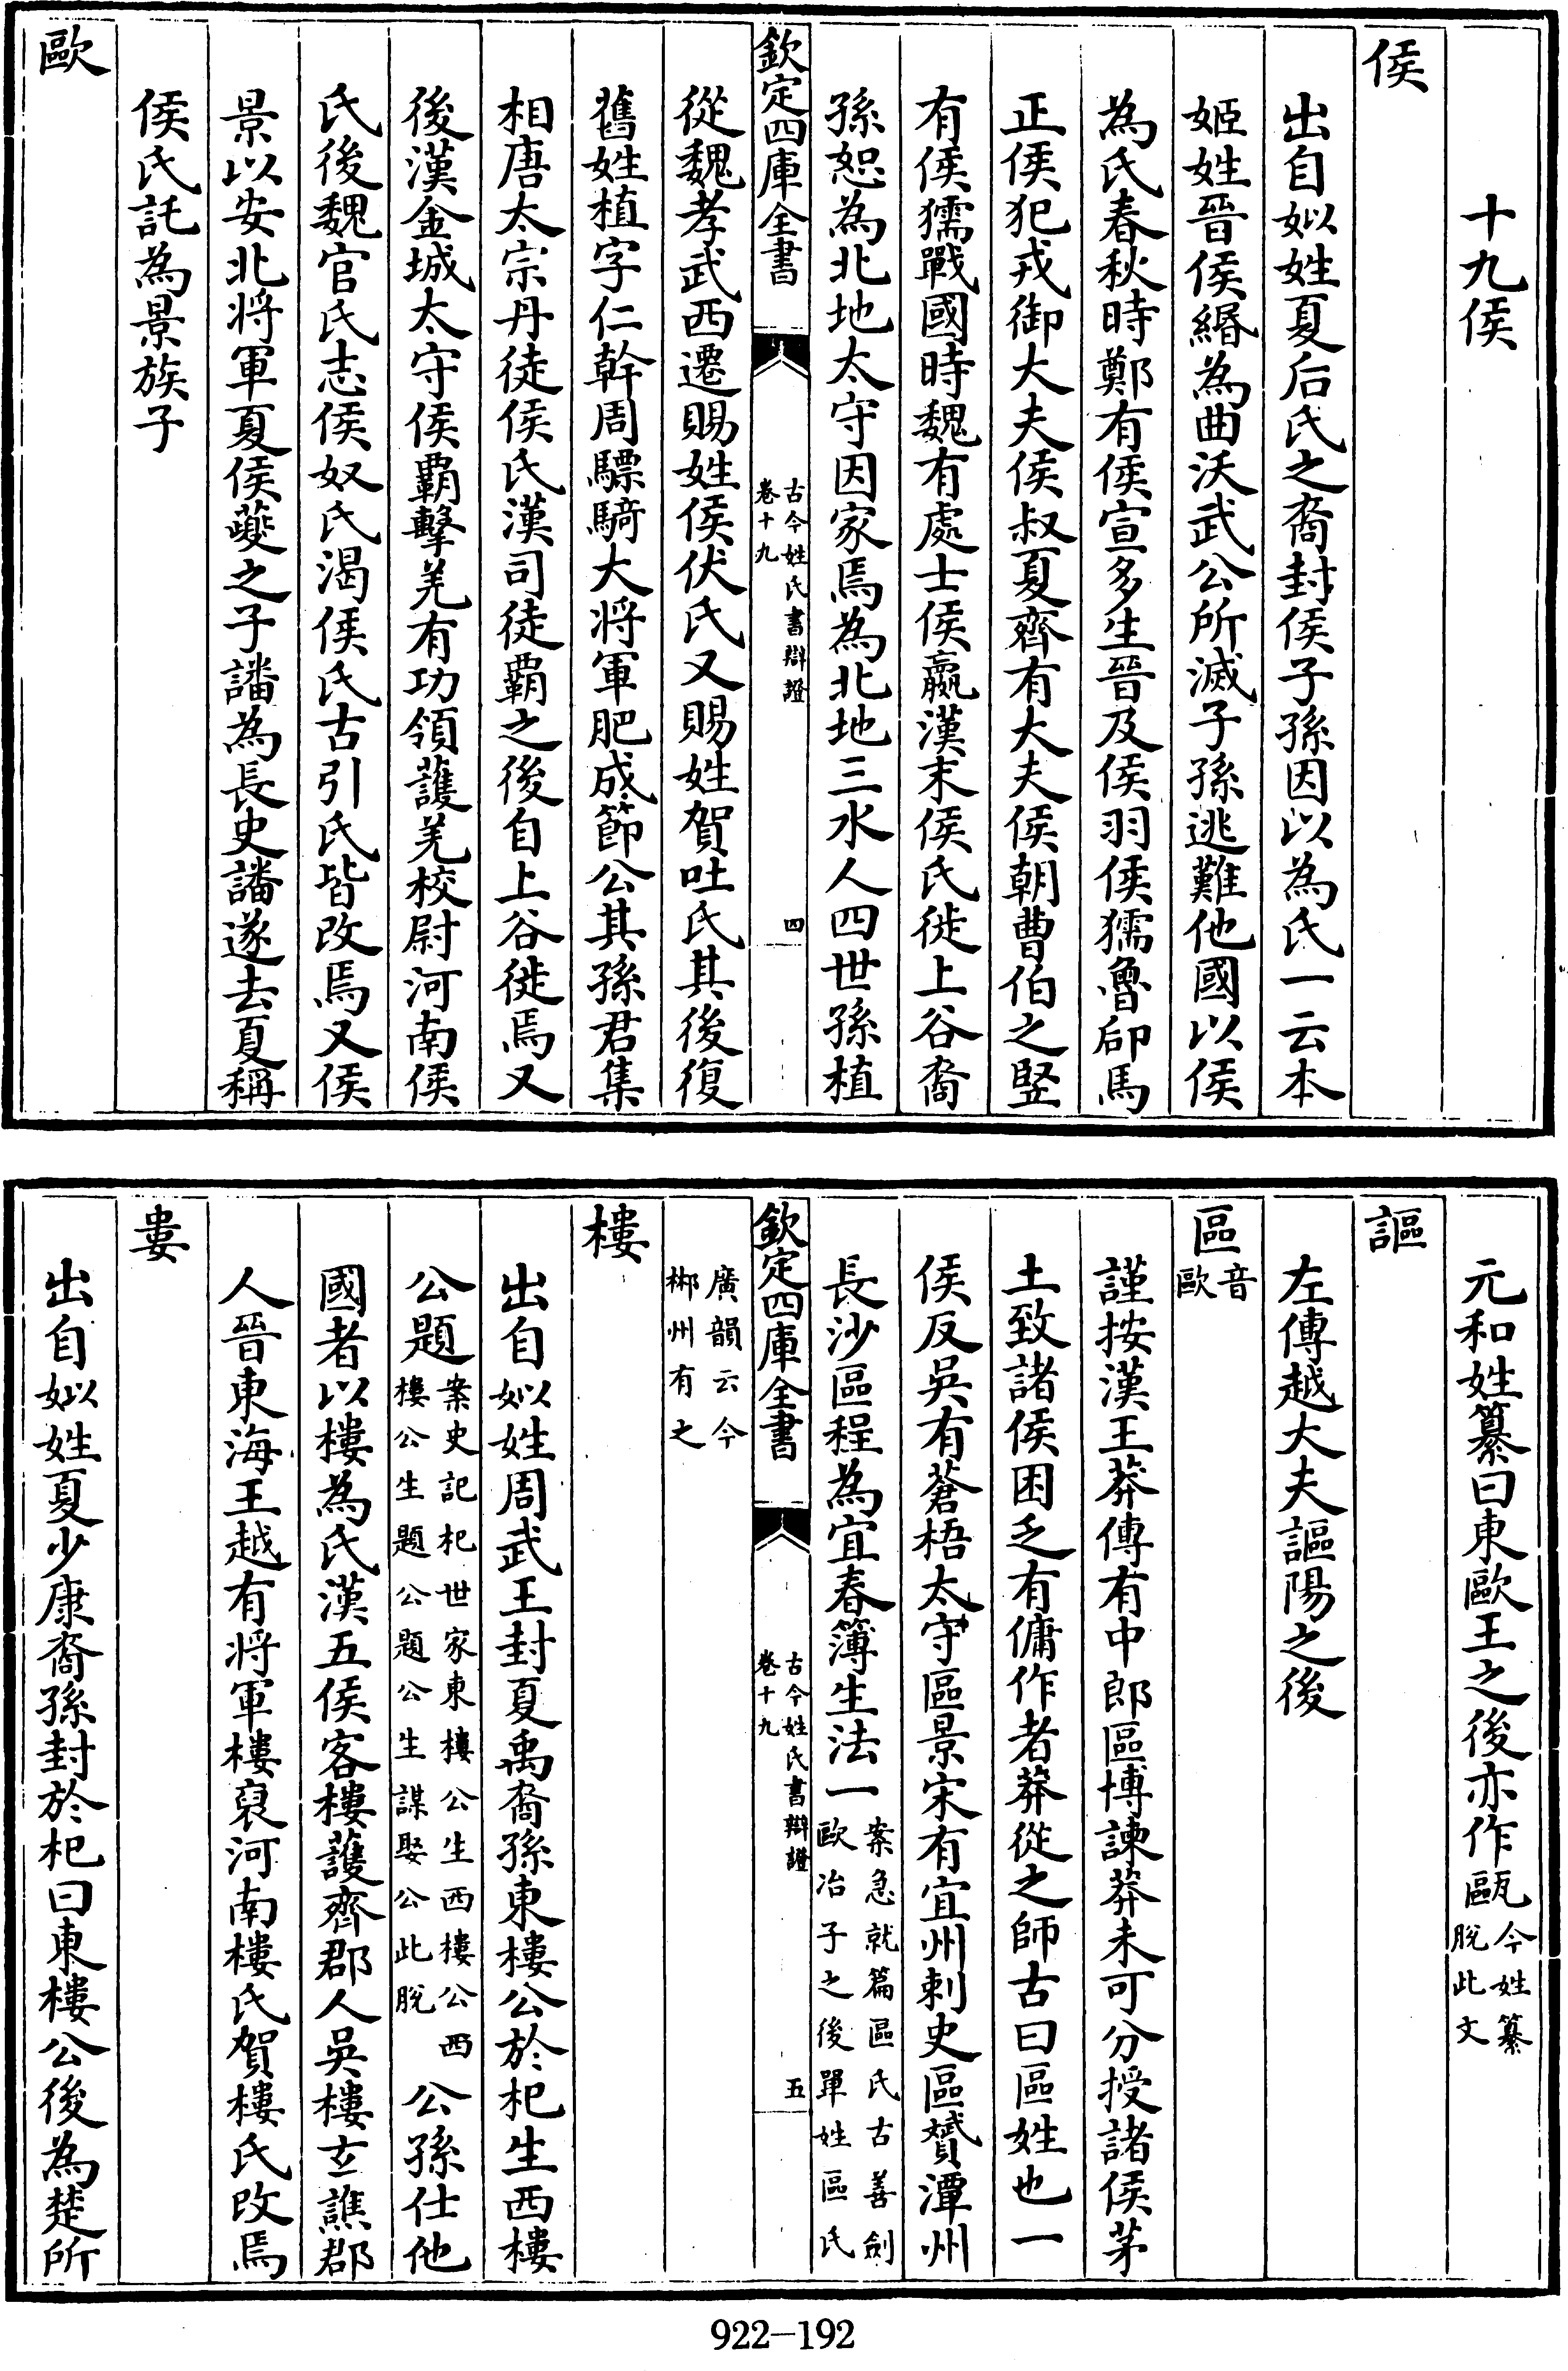 十九侯
侯
出自姒姓夏后氏之裔封侯子孫因以為氏一云本
姬姓晉侯緡為曲沃武公所滅子孫逃難他國以侯
為氏春秋時鄭有侯宣多生晉及侯羽侯獳魯郈馬
正侯犯戎御大夫侯叔夏齊有大夫侯朝曹伯之竪
有侯獳戰國時魏有處士侯嬴漢末侯氏徙上谷裔
孫恕為北地太守因家焉為北地三水人四世孫植
欽定四庫全書
古今姓氏書辯證
卷十九
四
從魏孝武西遷賜姓侯伏氏又賜姓賀吐氏其後復
舊姓植字仁幹周驃騎大將軍肥成節公其孫君集
相唐太宗丹徒侯氏漢司徒霸之後自上谷徙焉又
後漢金城太守侯霸擊羌有功領護羌校尉河南侯
氏後魏官氏志侯奴氏渴侯氏古引氏皆改焉又侯
景以安北將軍夏侯夔之子譒為長史譒遂去夏稱
侯氏託為景族子
歐
元和姓纂曰東歐王之後亦作甌今姓纂
脫此文
謳
左傳越大夫謳陽之後
區音
歐
謹按漢王莽傳有中郎區博諫莽未可分授諸侯茅
土致諸侯困乏有傭作者莽從之師古曰區姓也一
侯反吳有蒼梧太守區景宋有宜州刺史區贇潭州
長沙區程為宜春簿生法一案急就篇區氏古善劍
歐冶子之後單姓區氏
欽定四庫全書
古今姓氏書辯證
卷十九
五
廣韻云今
郴州有之
樓
出自姒姓周武王封夏禹裔孫東樓公於杞生西樓
公題案史記杞世家東樓公生西樓公西
樓公生題公題公生謀娶公此脫公孫仕他
國者以樓為氏漢五侯客樓護齊郡人吳樓玄譙郡
人晉東海王越有將軍樓裒河南樓氏賀樓氏改焉
婁
出自姒姓夏少康裔孫封於杞曰東樓公後為楚所
922-192